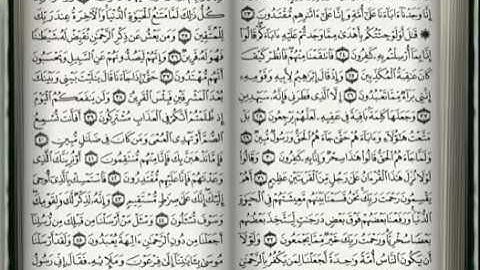 إِنَّا وَجَدْنَآ ءَابَآءَنَا عَلَىٰٓ أُمَّةٍ وَإِنَّا عَلَىٰٓ ءَاثَٰرِهِم مُّقْتَدُونَ ٢٣
۞ قَٰلَ أَوَلَوْ جِئْتُكُم بِأَهْدَىٰ مِمَّا وَجَدتُّمْ عَلَيْهِ ءَابَآءَكُمْ قَالُوٓا۟
إِنَّا بِمَآ أُرْسِلْتُم بِهِۦ كَٰفِرُونَ ٢٤ فَٱنتَقَمْنَا مِنْهُمْ فَٱنظُرْ كَيْفَ
كَانَ عَٰقِبَةُ ٱلْمُكَذِّبِينَ ٢٥ وَإِذْ قَالَ إِبْرَٰهِيمُ لِأَبِيهِ وَقَوْمِهِۦٓ
إِنَّنِى بَرَآءٌ مِّمَّا تَعْبُدُونَ ٢٦ إِلَّا ٱلَّذِى فَطَرَنِى فَإِنَّهُۥ سَيَهْدِينِ
٢٧ وَجَعَلَهَا كَلِمَةًۢ بَاقِيَةً فِى عَقِبِهِۦ لَعَلَّهُمْ يَرْجِعُونَ ٢٨ بَلْ
مَتَّعْتُ هَٰٓؤُلَآءِ وَءَابَآءَهُمْ حَتَّىٰ جَآءَهُمُ ٱلْحَقُّ وَرَسُولٌ مُّبِينٌ ٢٩
وَلَمَّا جَآءَهُمُ ٱلْحَقُّ قَالُوا۟ هَٰذَا سِحْرٌ وَإِنَّا بِهِۦ كَٰفِرُونَ ٣٠ وَقَالُوا۟
لَوْلَا نُزِّلَ هَٰذَا ٱلْقُرْءَانُ عَلَىٰ رَجُلٍ مِّنَ ٱلْقَرْيَتَيْنِ عَظِيمٍ ٣١ أَهُمْ
يَقْسِمُونَ رَحْمَتَ رَبِّكَ نَحْنُ قَسَمْنَا بَيْنَهُم مَّعِيشَتَهُمْ فِى ٱلْحَيَوٰةِ
ٱلدُّنْيَا وَرَفَعْنَا بَعْضَهُمْ فَوْقَ بَعْضٍ دَرَجَٰتٍ لِّيَتَّخِذَ بَعْضُهُم
بَعْضًا سُخْرِيًّا وَرَحْمَتُ رَبِّكَ خَيْرٌ مِّمَّا يَجْمَعُونَ ٣٢ وَلَوْلَآ
أَن يَكُونَ ٱلنَّاسُ أُمَّةً وَٰحِدَةً لَّجَعَلْنَا لِمَن يَكْفُرُ بِٱلرَّحْمَٰنِ
كُلُّ ذَٰلِكَ لَمَّا مَتَٰعُ ٱلْحَيَوٰةِ ٱلدُّنْيَا وَٱلْءَاخِرَةُ عِندَ رَبِّكَ
لِلْمُتَّقِينَ ٣٥ وَمَن يَعْشُ عَن ذِكْرِ ٱلرَّحْمَٰنِ نُقَيِّضْ لَهُۥ شَيْطَٰنًا
فَهُوَ لَهُۥ قَرِينٌ ٣٦ وَإِنَّهُمْ لَيَصُدُّونَهُمْ عَنِ ٱلسَّبِيلِ وَيَحْسَبُونَ
أَنَّهُم مُّهْتَدُونَ ٣٧ حَتَّىٰٓ إِذَا جَآءَنَا قَالَ يَٰلَيْتَ بَيْنِى وَبَيْنَكَ
بُعْدَ ٱلْمَشْرِقَيْنِ فَبِئْسَ ٱلْقَرِينُ ٣٨ وَلَن يَنفَعَكُمُ ٱلْيَوْمَ
إِذ ظَّلَمْتُمْ أَنَّكُمْ فِى ٱلْعَذَابِ مُشْتَرِكُونَ ٣٩ أَفَأَنتَ تُسْمِعُ
ٱلصُّمَّ أَوْ تَهْدِى ٱلْعُمْىَ وَمَن كَانَ فِى ضَلَٰلٍ مُّبِينٍ ٤٠
فَإِمَّا نَذْهَبَنَّ بِكَ فَإِنَّا مِنْهُم مُّنتَقِمُونَ ٤١ أَوْ نُرِيَنَّكَ ٱلَّذِى
وَعَدْنَٰهُمْ فَإِنَّا عَلَيْهِم مُّقْتَدِرُونَ ٤٢ فَٱسْتَمْسِكْ بِٱلَّذِىٓ أُوحِىَ
إِلَيْكَ إِنَّكَ عَلَىٰ صِرَٰطٍ مُّسْتَقِيمٍ ٤٣ وَإِنَّهُۥ لَذِكْرٌ لَّكَ وَلِقَوْمِكَ
وَسَوْفَ تُسْـَٔلُونَ ٤٤ وَسْـَٔلْ مَنْ أَرْسَلْنَا مِن قَبْلِكَ مِن رُّسُلِنَآ
أَجَعَلْنَا مِن دُونِ ٱلرَّحْمَٰنِ ءَالِهَةً يُعْبَدُونَ ٤٥ وَلَقَدْ أَرْسَلْنَا
مُوسَىٰ بِـَٔايَٰتِنَآ إِلَىٰ فِرْعَوْنَ وَمَلَإِي۟هِۦ فَقَالَ إِنِّى رَسُولُ